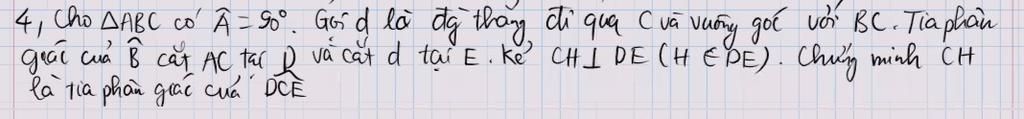 4, Cho ΔABC có Â = 90°. Gọi d là đg thẳng đi qua C và vuông góc với BC. Tia phân
giác của B̂ cắt AC tại D và cắt d tại E. Kẻ CH ⊥ DE (H ∈ DE). Chứng minh CH
là tia phân giác của D̂CE